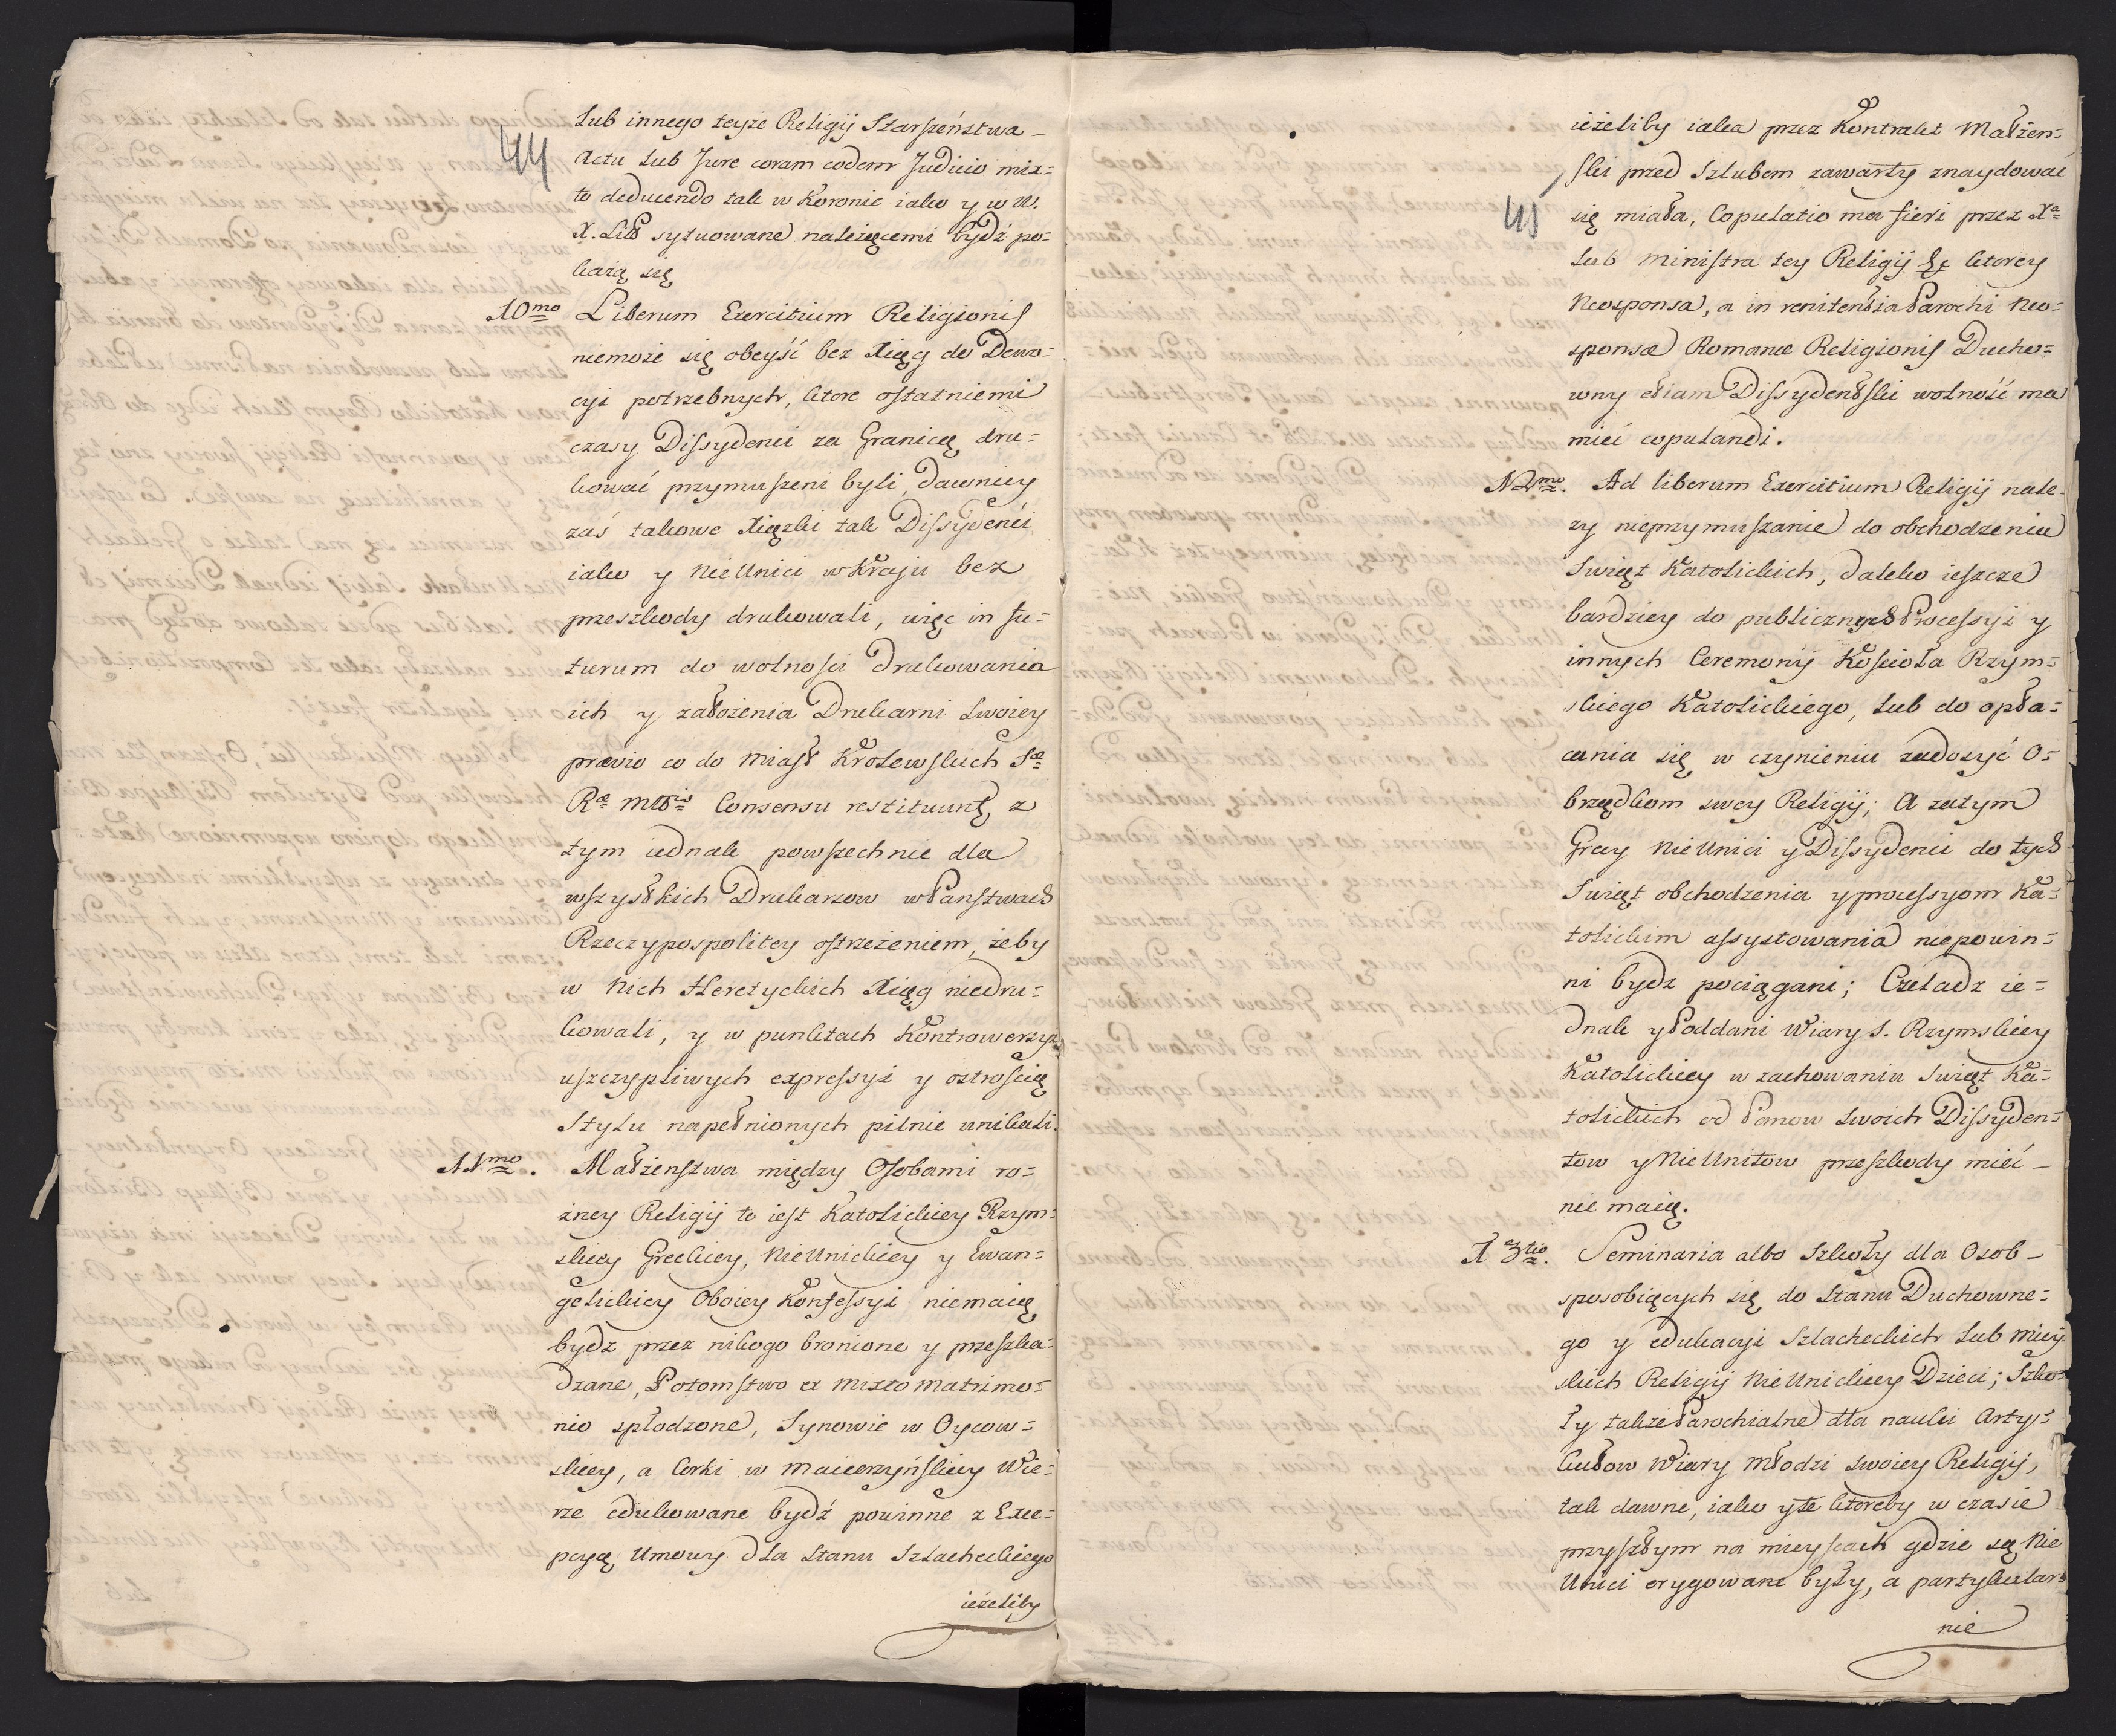 44
lub innego teyże Religij Starszeństwa
Actu lub Jure coram eodem Judicio mix=
to deducendo tak w Koronie iako y w W.
X. Litt sytuowane należącemi bydź po=
każą się
10mo Liberum Exercitium Religionis
niemoże się obeyść bez Xięg do Dewo=
cyi potrzebnych, ktore ostatniemi
czasy Dissydenci za Granicą dru=
kować przymuszeni byli, dawniey
zaś takowe Xięzki tak Dissydenći
iako y Nie Unici w Kraju bez
przeszkody drukowali, więc in fu=
turum do wolnosci Drukowania
ich y założenia Drukarni Swoiey
prævio co do Miast Krolewskich Sæ
Ræ Mttis Consensu restituunt, z
tym iednak powszechnie dla
wszystkich Drukarzow w Panstwach
Rzeczypospolitey ostrzeżeniem, żeby
w Nich Heretyckich Xiąg niedru=
kowali, y w punktach Kontrowerzyi
uszczypliwych expressyi y ostrością
Stylu napełnionych pilnie unikali.
11mo. Małżenstwa między Osobami ro=
zney Religij to iest Katolickiey Rzym=
skiey Greckiey, Nie Unickiey y Ewan=
gelickiey Oboiey Konfessyi niemaią
bydz przez nikogo bronione y przeszka=
dzane, Potomstwo ex Mixto Matrimo=
nio spłodzone, Synowie w Oycow=
skiey, a Corki w Macierzyńskiey Wie=
rze edukowane bydź powinne z Exce=
pcyą Umowy dla Stanu Szlacheckiego
ieżeliby
45
ieżeliby iaka przez Kontrakt Małżen=
ski przed Szlubem zawarty znaydować
się miała, Copulatio ma fieri przez Xa
lub Ministra tey Religij ktorey
Neosponsa, a in renitentia Parochi Neo=
sponsæ Romanæ Religionis Ducho=
wny etiam Dissydentski wolność ma
mieć copulandi.
12mo. Ad liberum Exercitium Religij nale=
zy nieprzymuszanie do obchodzenia
Swiąt Katolickich, daleko ieszcze
bardziey do publicznych Processyi y
innych Ceremonij Kościoła Rzym=
skiego Katolickiego, lub do opła=
cania się w czynieniu zadosyć O=
brządkom swey Religij; A zatym
Grecy Nie Unici y Dissydenci do tych
Swiąt obchodzenia y processyom Ka=
tolickim assystowania niepowin=
ni bydz pociągani; Czeladz ie=
dnak y Poddani Wiary S. Rzymskiey
Katolickiey w zachowaniu Swiąt Ka=
tolickich od Panow Swoich Dissyden=
tow y Nie Unitow przeszkody mieć
nie maią.
13tio. Seminaria albo Szkoły dla Osob
sposobiących się do Stanu Duchowne=
go y edukacyi Szlacheckich lub Miey=
skich Religij Nie Unickiey Dzieci; Szko=
ły także Parochialne dla nauki Arty=
kułow Wiary Młodzi Swoiey Religij,
tak dawne, iako y te ktoreby w czasie
przyszłym na mieyscach gdzie są Nie
Unici erygowane były, a partykular=
nie